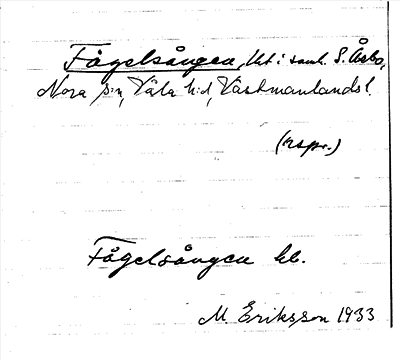 Fågelsången, lht i saml. S. Åsbo,
Nora sn, Våla hd, Västmanlands l.
(rspr.)
Fågelsången hb.
M. Eriksson 1933